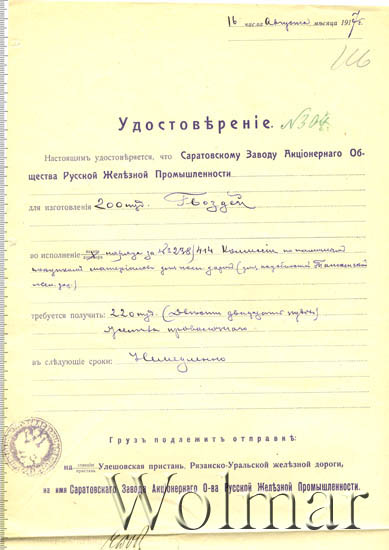 16 числа Августа мѣсяца 1917 г.
116
Удостовѣренiе. №304
Настоящимъ удостовѣряется, что Саратовскому Заводу Акцiонернаго Об-
щества Русской Желѣзной Промышленности
для изготовленiя 200 пуд. Гвоздей
во исполненiе наряда за №238/414 Комиссiи по
требуется получить: 220 пуд. (Двѣсти двадцать пудовъ)
желѣза проволочнаго
въ слѣдующiе сроки: Немедленно
Грузъ подлежитъ отправкѣ:
на станцiю пристань Улешовская пристань, Рязанско-Уральской желѣзной дороги,
на имя Саратовскаго Завода Акцiонернаго О-ва Русской Желѣзной Промышленности.
Wolmar